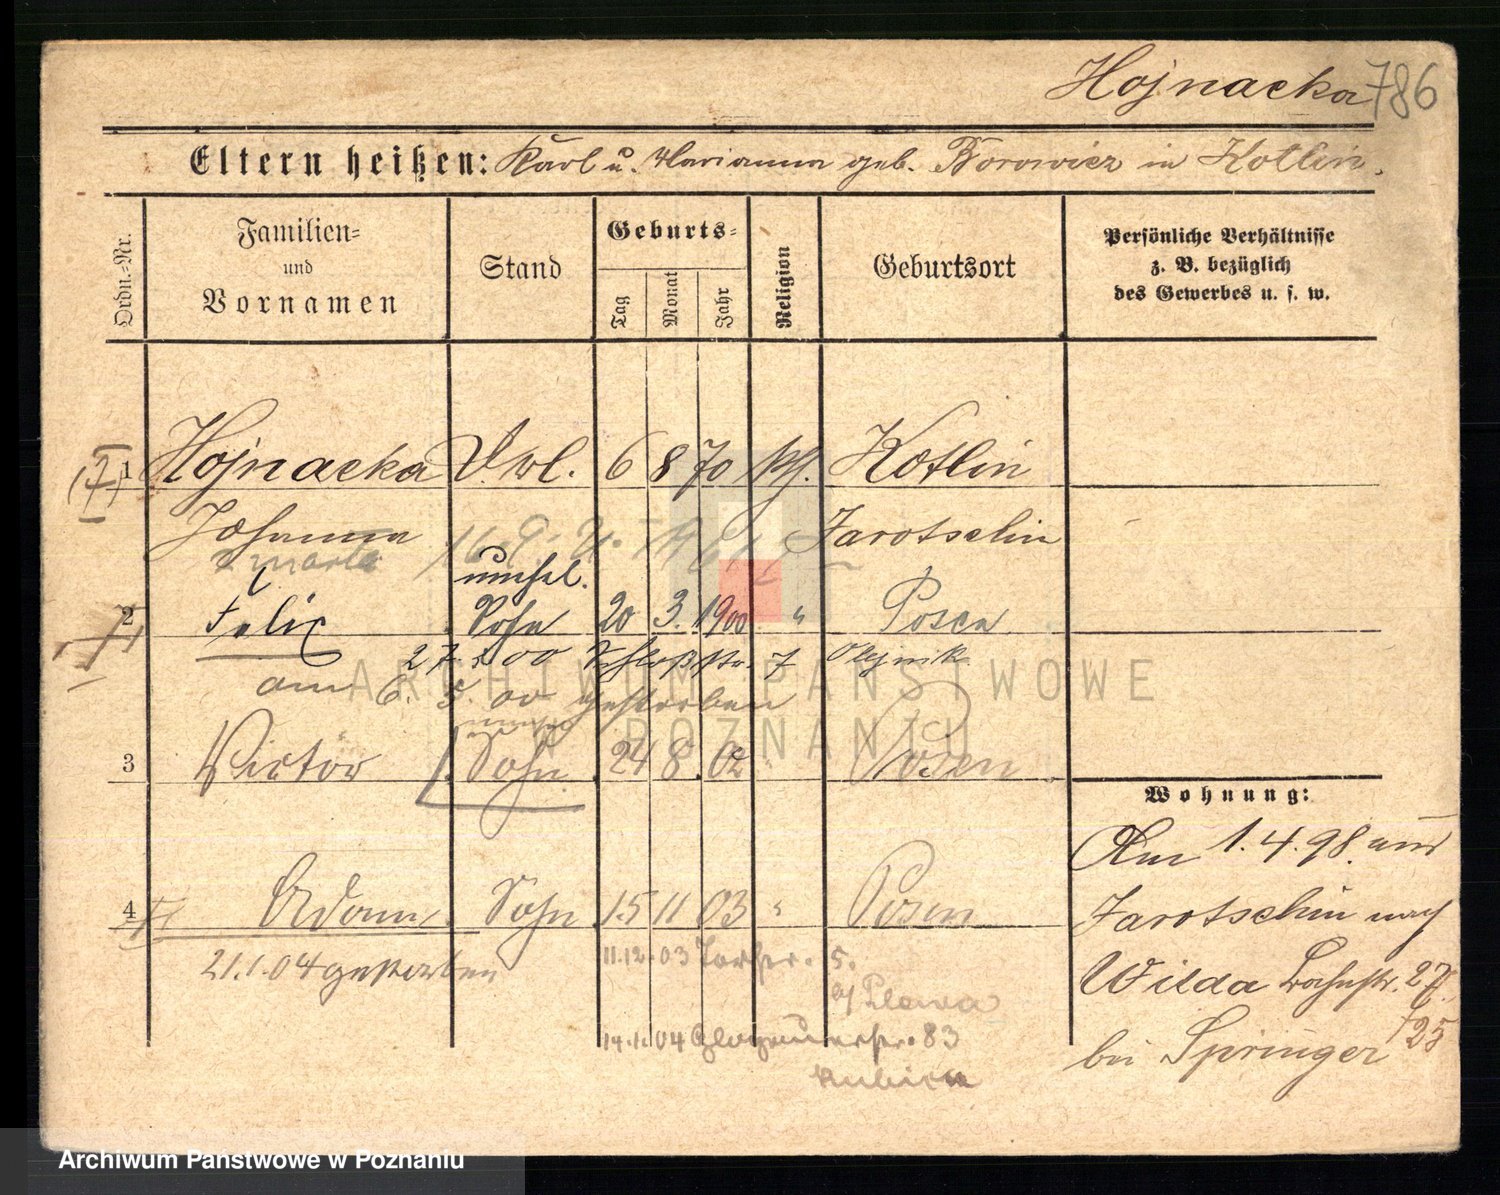 Hojnacka 786
Eltern heißen: Karl u. Marianna geb. Borowicz in Kotlin.
Ordn.-Nr.
Familien-
und
Vornamen
Stand
Geburts-
Tag
Monat
Jahr
Religion
Geburtsort
Persönliche Verhältnisse
z. B. bezüglich
des Gewerbes u. s. w.
1 Hojnacka 6 8 70 kth. Kotlin
Johanna Jarotschin
unehel.
2 Felix Sohn 20 3. 1900 " Posen
27. 00 Schloßstr. 7 Olejnik
am 6. 5. 00 gestorben
3 Victor Sohn 24 8. 02 Posen
Wohnung:
Am 1.4.98. aus
4 Adam Sohn 15 11 03 " Posen
Jarotschin nach
21.1.04 gestorben
11.12.03 5.
Wilda Bachstr. 27.
25
14.1.04 Glogauerstr. 83
bei Springer
ARCHIWUM PAŃSTWOWE
W POZNANIU
Archiwum Państwowe w Poznaniu